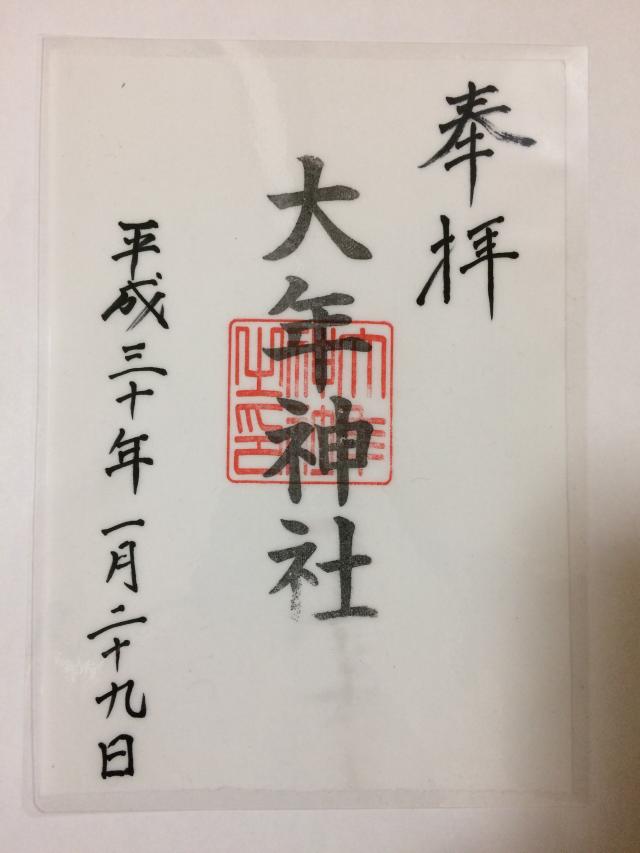 奉拝
大年神社
平成三十年一月二十九日